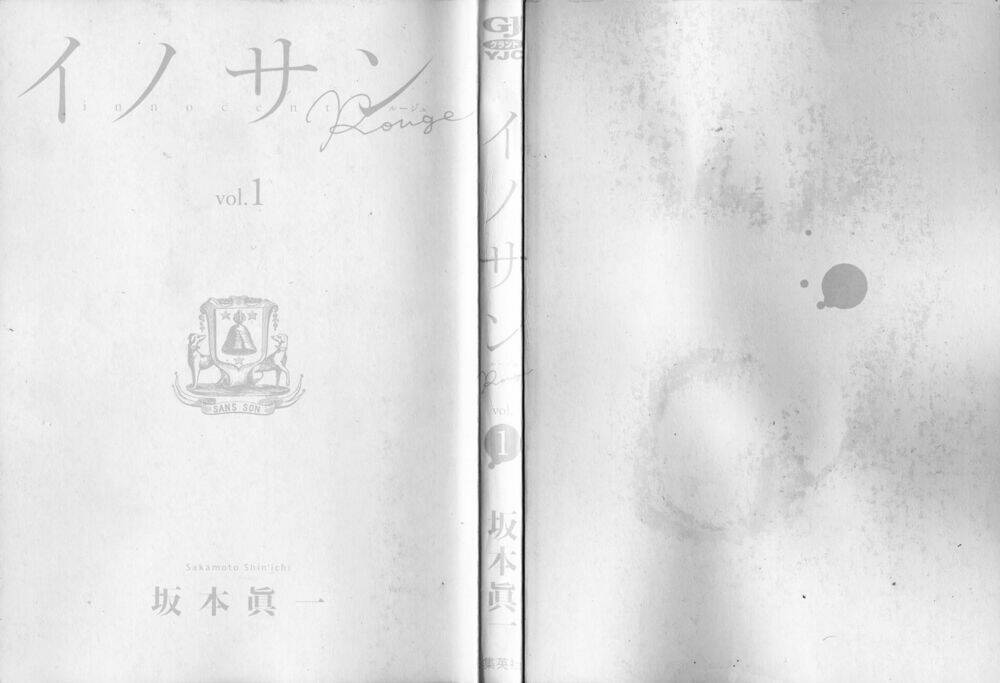 イノサン
innocent
ルージュ
Rouge
vol.1
SANS SON
Sakamoto Shin'ichi
坂本眞一
GJ
グランド
YJC
イノサン
Rouge
vol.
1
坂本眞一
集英社